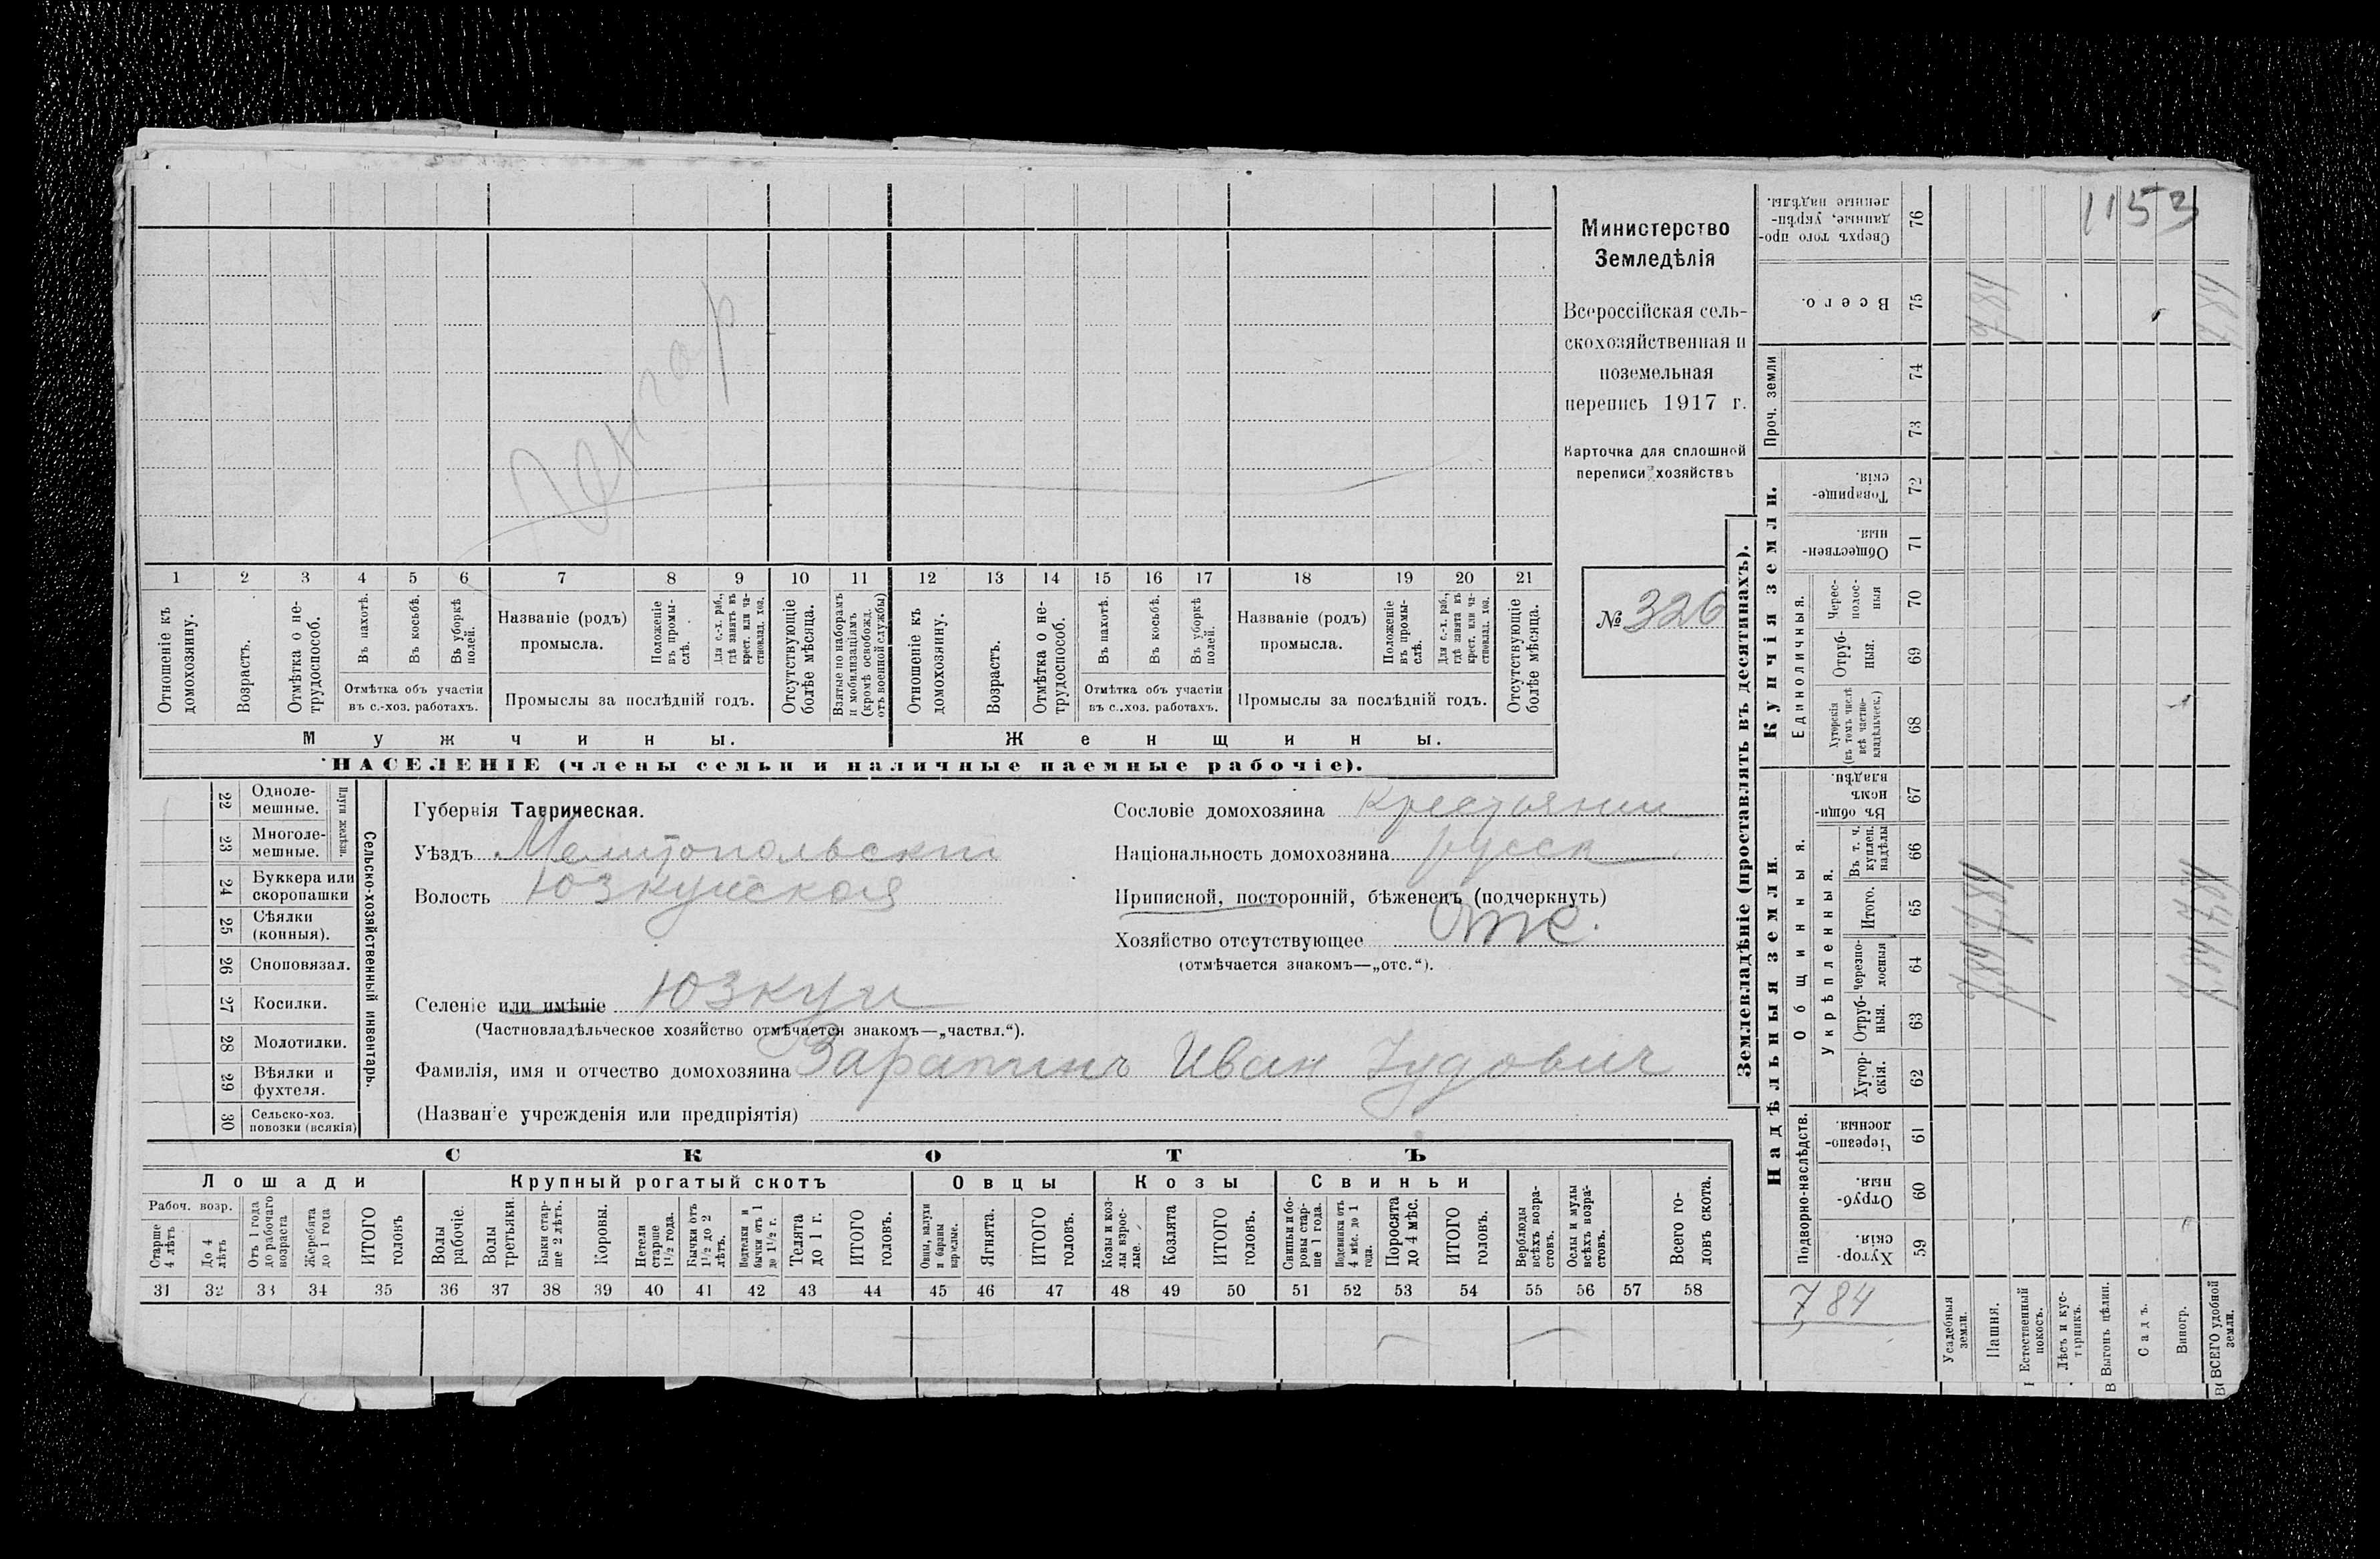 Министерство
Земледѣлія
Всероссійская сель-
скохозяйственная и
поземельная
перепись 1917 г.
Карточка для сплошной
переписи хозяйствъ
№ 326
1153
1 2 3 4 5 6 7 8 9 10 11 12 13 14 15 16 17 18 19 20 21
Отношеніе къ домохозяину.
Возрастъ.
Отмѣтка о не-трудоспособ.
Въ пахотѣ.
Въ косьбѣ.
Въ уборкѣ полей.
Отмѣтка объ участіи
въ с.-хоз. работахъ.
Названіе (родъ)
промысла.
Положеніе въ промы-слѣ.
Для с.-х. раб., гдѣ занятъ въ крест. или ча-стновлад. хоз.
Промыслы за послѣдній годъ.
Отсутствующіе болѣе мѣсяца.
Взятые по наборамъ и мобилизаціямъ (кромѣ освобожд. отъ военной службы)
Отношеніе къ домохозяину.
Возрастъ.
Отмѣтка о не-трудоспособ.
Въ пахотѣ.
Въ косьбѣ.
Въ уборкѣ полей.
Отмѣтка объ участіи
въ с.-хоз. работахъ.
Названіе (родъ)
промысла.
Положеніе въ промы-слѣ.
Для с.-х. раб., гдѣ занята въ крест. или ча-стновлад. хоз.
Промыслы за послѣдній годъ.
Отсутствующіе болѣе мѣсяца.
Мужчины. Женщины.
НАСЕЛЕНІЕ (члены семьи и наличные наемные рабочіе).
Сельско-хозяйственный инвентарь.
Плуги желѣзн.
22 Однолемешные.
23 Многолемешные.
24 Буккера или скоропашки
25 Сѣялки (конныя).
26 Сноповязал.
27 Косилки.
28 Молотилки.
29 Вѣялки и фухтеля.
30 Сельско-хоз. повозки (всякія)
Губернія Таврическая.
Уѣздъ Мелитопольскій
Волость Юзкуйская
Селеніе или имѣніе Юзкуи
(Частновладѣльческое хозяйство отмѣчается знакомъ—„частвл.“).
Сословіе домохозяина Крестьянин
Національность домохозяина русск
Приписной, посторонній, бѣженецъ (подчеркнуть)
Хозяйство отсутствующее Отс.
(отмѣчается знакомъ—„отс.“).
Фамилія, имя и отчество домохозяина Иван
(Названіе учрежденія или предпріятія)
СКОТЪ
Лошади Крупный рогатый скотъ Овцы Козы Свиньи
Рабоч. возр.
Старше 4 лѣтъ
До 4 лѣтъ
Отъ 1 года до рабочаго возраста
Жеребята до 1 года
ИТОГО головъ
Волы рабочіе.
Волы третьяки.
Быки стар-ше 2 лѣтъ.
Коровы.
Нетели старше 1½ года.
Бычки отъ 1½ до 2 лѣтъ.
Подтелки и бычки отъ 1 до 1½ г.
Телята до 1 г.
ИТОГО головъ.
Овцы, валухи и бараны взрослые.
Ягнята.
ИТОГО головъ.
Козы и коз-лы взрос-лые.
Козлята
ИТОГО головъ.
Свиньи и бо-ровы стар-ше 1 года.
Подсвинки отъ 4 мѣс. до 1 года.
Поросята до 4 мѣс.
ИТОГО головъ.
Верблюды всѣхъ возра-стовъ.
Ослы и мулы всѣхъ возра-стовъ.
Всего го-ловъ скота.
31 32 33 34 35 36 37 38 39 40 41 42 43 44 45 46 47 48 49 50 51 52 53 54 55 56 57 58
Землевладѣніе (проставлять въ десятинахъ).
Надѣльныя земли.
Купчія земли.
Проч. земли
Подворно-наслѣдств.
Общинныя.
Укрѣпленныя.
Единоличныя.
Сверхъ того про-данные, укрѣп-ленные надѣлы. 76
Всего. 75
74
73
Товарище-скія. 72
Обществен-ныя 71
Черес-полос-ныя 70
Отруб-ныя. 69
Хуторскія (въ томъ числѣ всѣ частно-владѣльческ.) 68
Въ общи-номъ владѣн. 67
Въ т. ч. куплен. надѣлы 66
Итого. 65
Черезпо-лосныя 64
Отруб-ныя. 63
Хутор-скія. 62
Черезпо-лосныя. 61
Отруб-ныя. 60
Хутор-скія. 59
784
784
784
784
784
Усадебныя земли.
Пашня.
Естественный покосъ.
Лѣсъ и кус-тарникъ.
Выгонъ цѣлин.
Садъ.
Виногр.
ВСЕГО удобной земли.